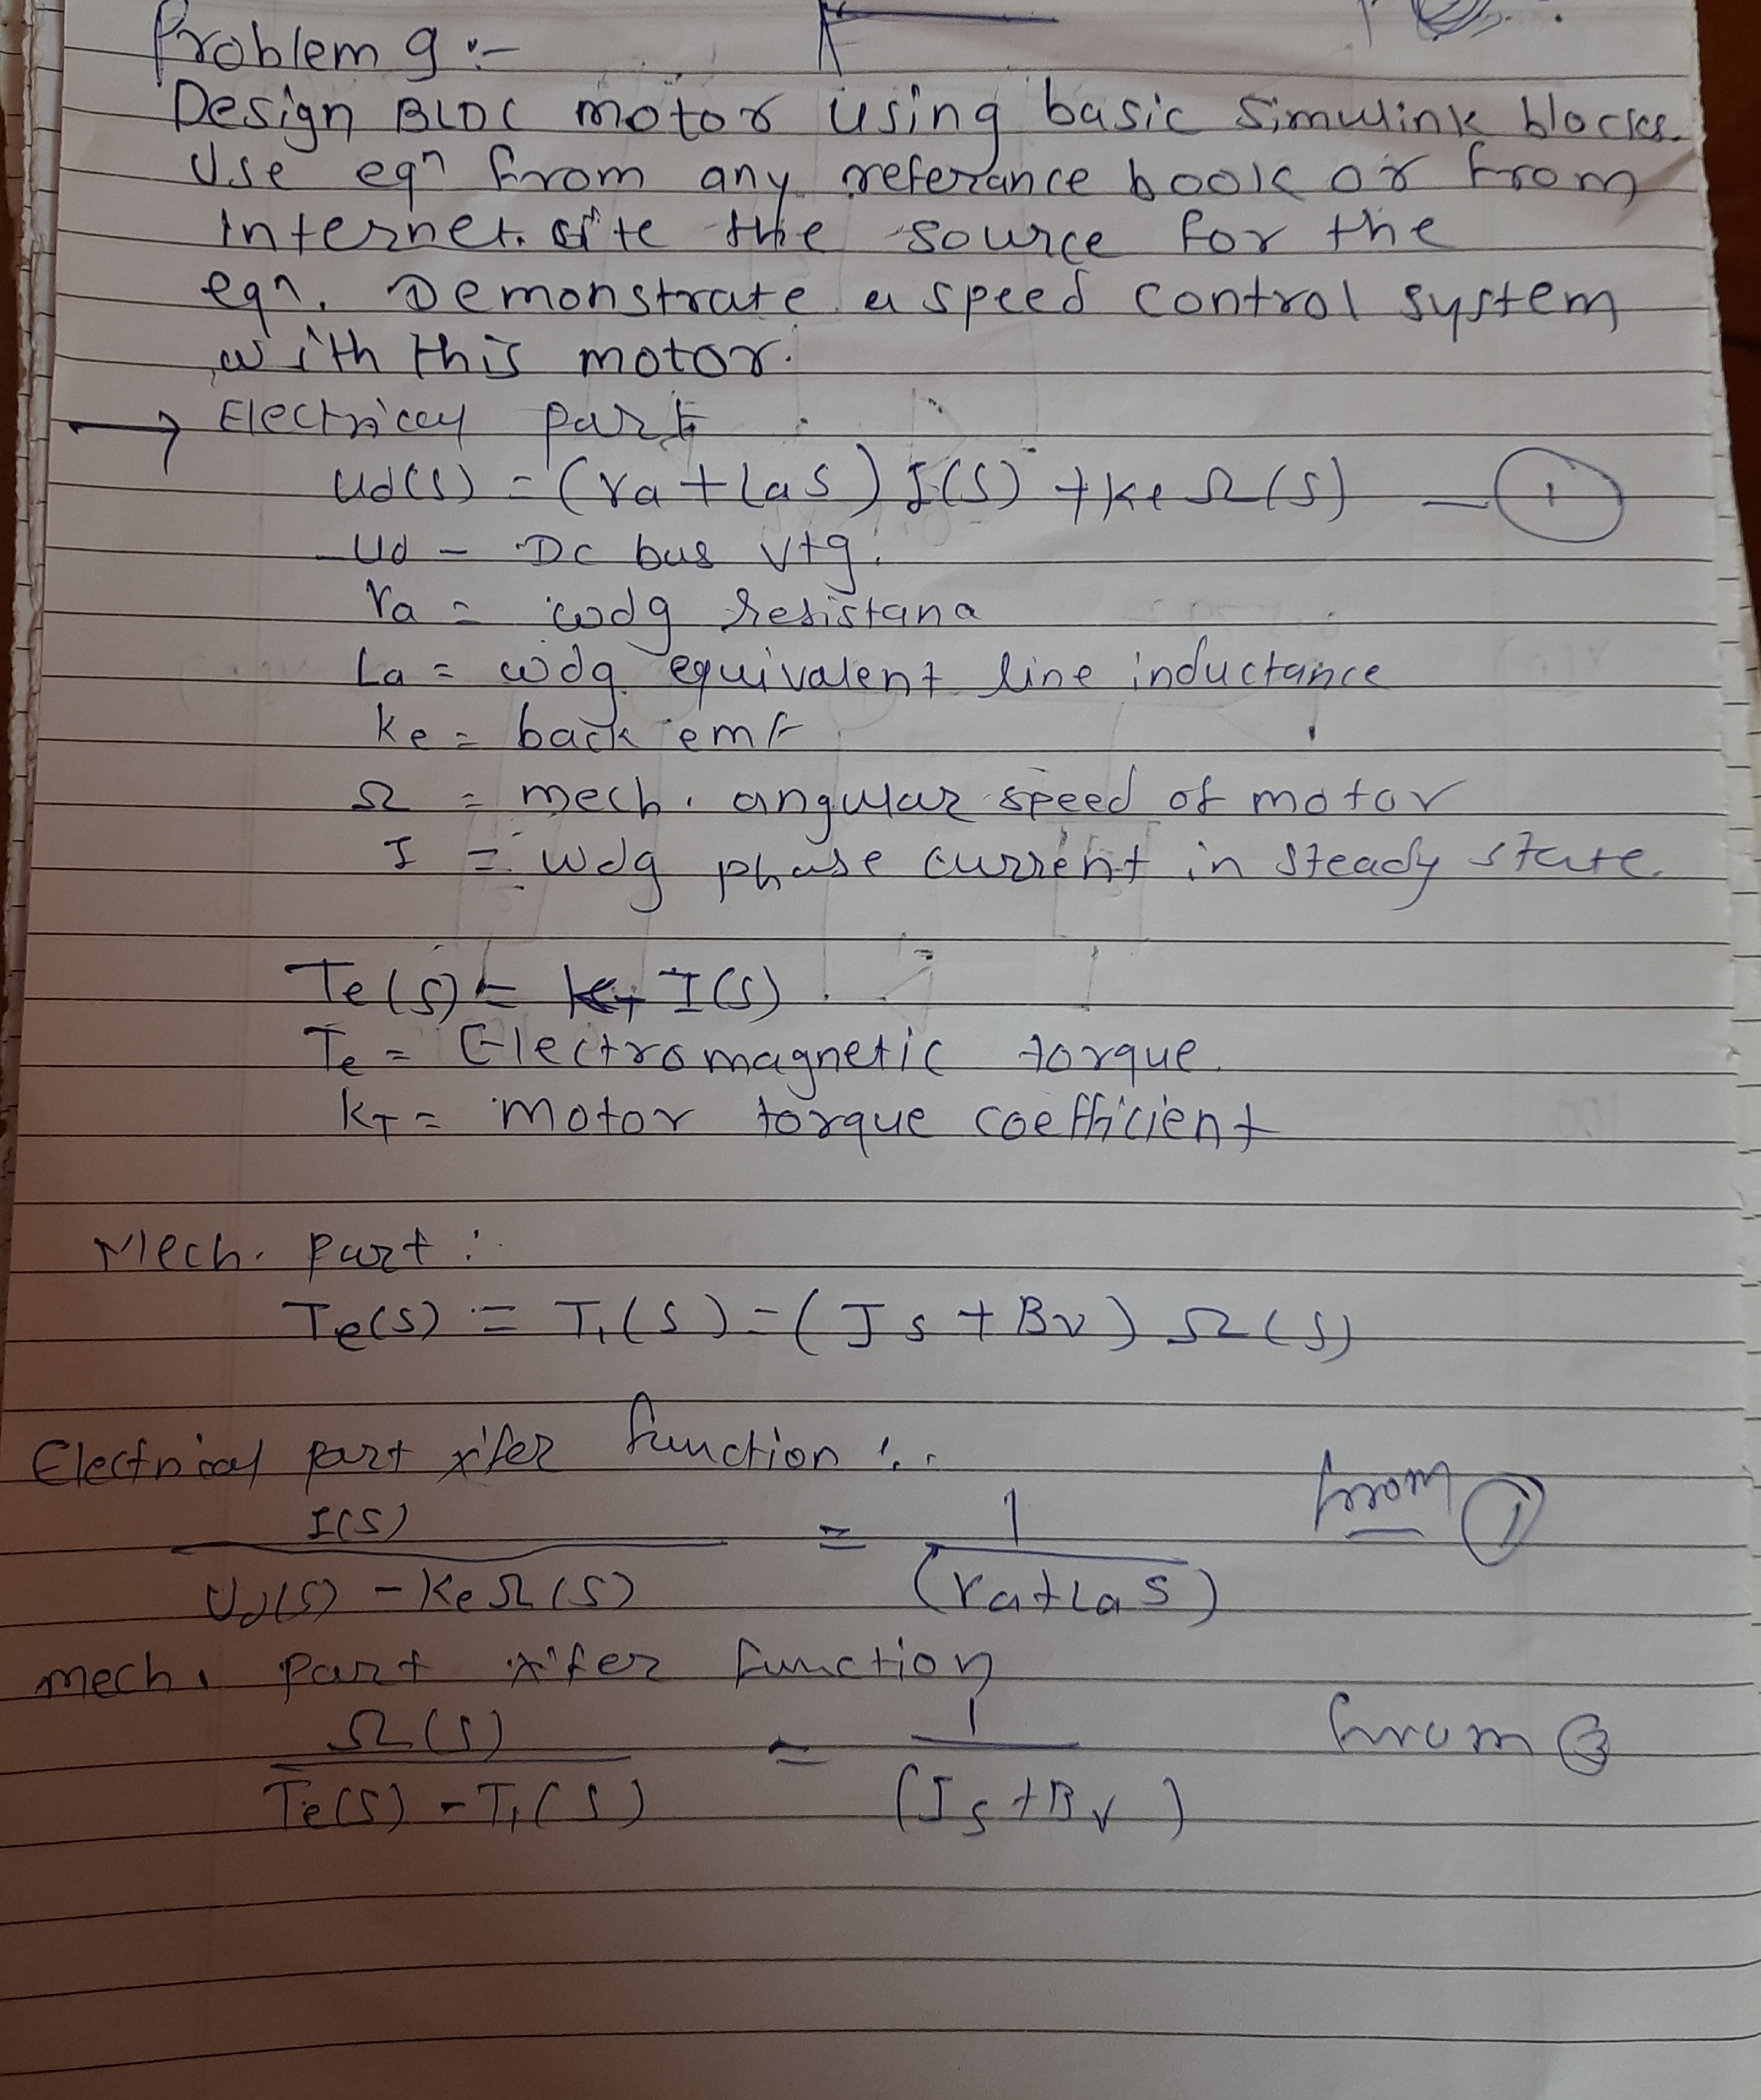 Problem 9 :-
Design BLDC motor using basic Simulink blocks.
Use eqn from any referance book or from
internet. site the source for the
eqn. Demonstrate a speed control system
with this motor.
→ Electrical part
Ud(s) = (ra + Las) I(s) + ke Ω(s) — ①
Ud - DC bus vtg.
ra = wdg resistana
La = wdg equivalent line inductance
ke = back emf
Ω = mech. angular speed of motor
I = wdg phase current in steady state.
Te(s) = kT I(s)
Te = Electromagnetic torque.
kT = motor torque coefficient
Mech. part :
Te(s) = Tl(s) = (Js + Bv) Ω(s)
Electrical part x'fer function :.
I(s) / Ud(s) - Ke Ω(s) = 1 / (ra + La s) from ①
mech. part x'fer function
Ω(s) / Te(s) - Tl(s) = 1 / (Js + Bv) from ③